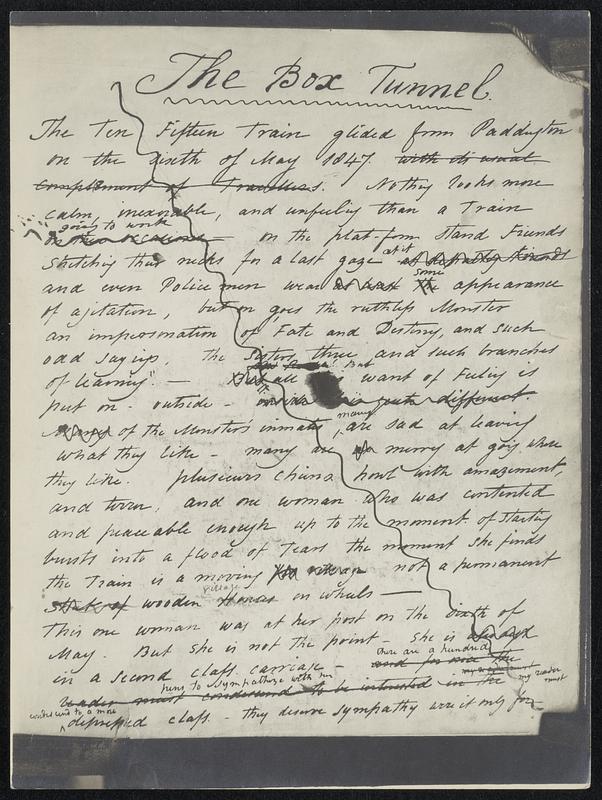 The Box Tunnel.
The Ten Fifteen Train glided from Paddington
on the sixth of May 1847. with its usual
complement of Travellers. Nothing looks more
calm, inexorable, and unfeeling than a Train
going to work
on the plat-form stand Friends
stretching their necks for a last gaze at it
some
and even Policemen wear the appearance
of agitation, but on goes the ruthless Monster
an impersonation of Fate and Destiny, and such
odd sayings, the sisters three, and such branches
of learning" —
But
But all want of Feeling is
put on - outside - different
many
of the Monster's inmates, are sad at leaving
what they like - many are merry at going where
they like. plusieurs chiens howl with amazement,
and terror, and one woman who was contented
and peaceable enough up to the moment of starting
bursts into a flood of Tears the moment she finds
the Train is a moving village not a permanent
village
wooden on wheels —
This one woman was at her post on the sixth of
May. But she is not the point - she is
there are a hundred
in a second class carriage - and for now the
pens to sympathize with her
my reader
must
reader must condescend to be interested in the
condescend to a more
depressed class - they deserve sympathy were it only for